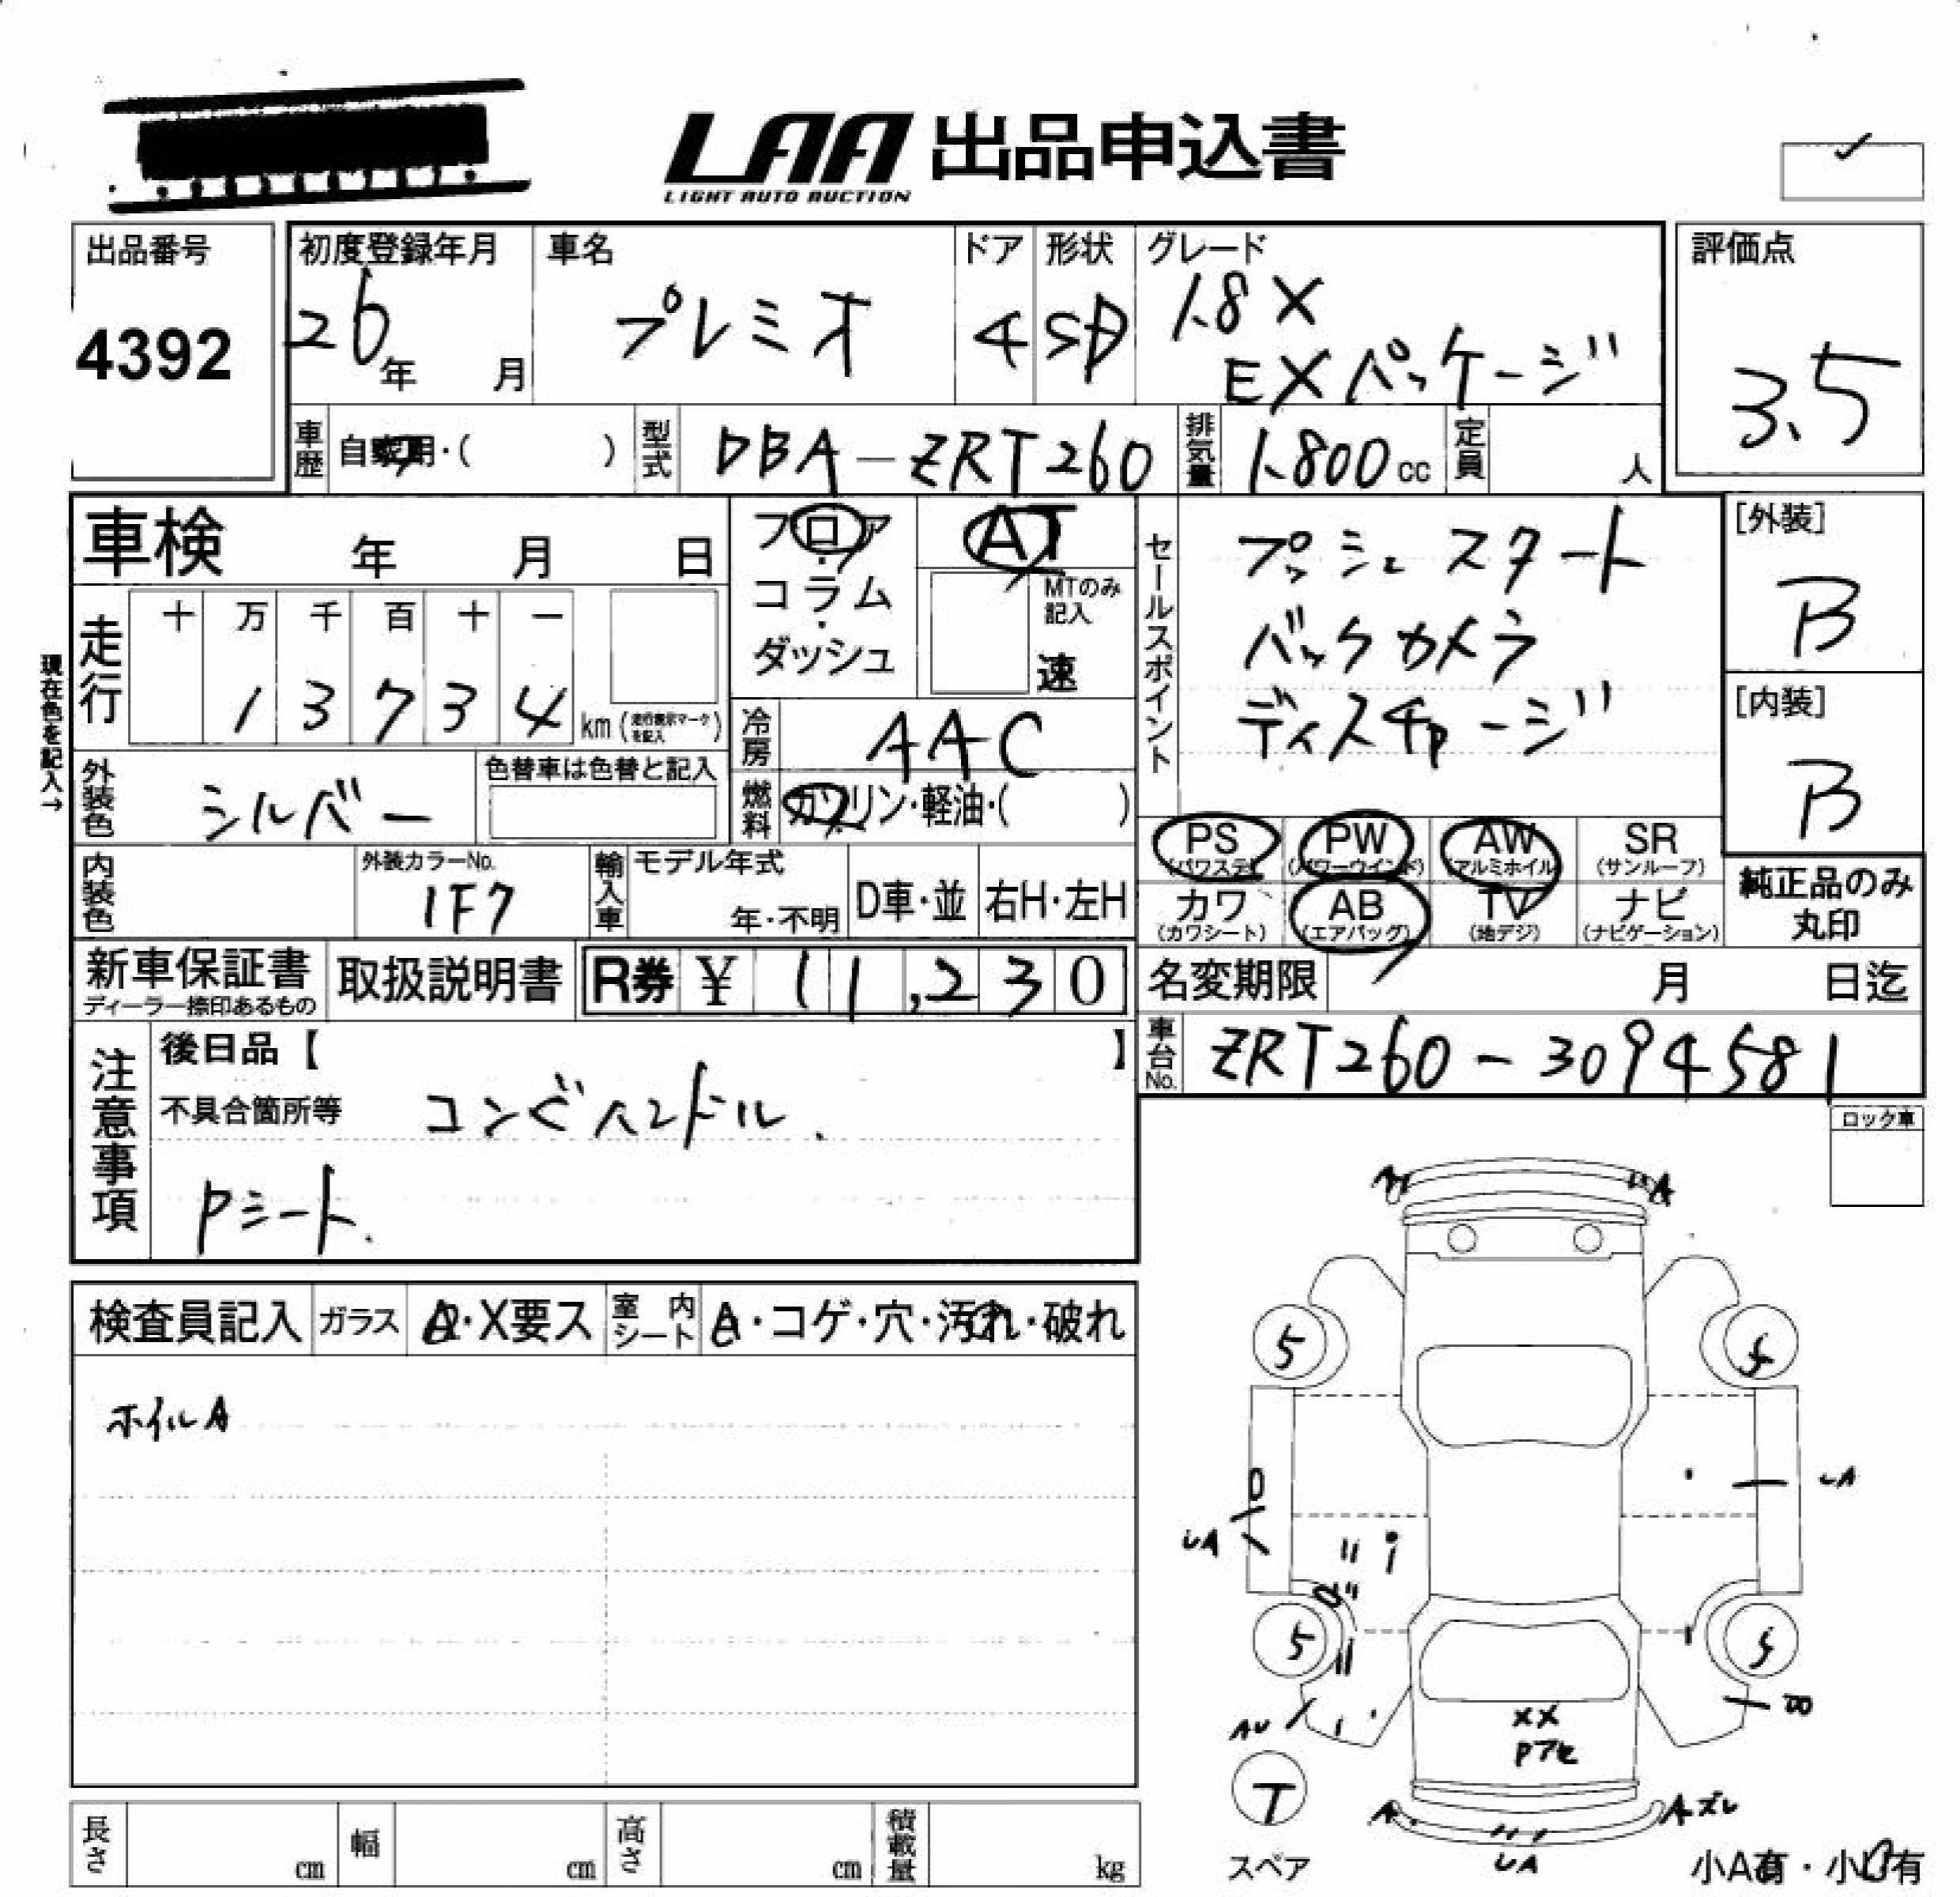 LAA 出品申込書
LIGHT AUTO AUCTION
出品番号
4392
初度登録年月
26年 月
車名
プレミオ
ドア
4
形状
SD
グレード
1.8X
EXパッケージ
評価点
3.5
車歴
自家用・( )
型式
DBA-ZRT260
排気量
1.800cc
定員
人
車検 年 月 日
フロア
コラム
ダッシュ
AT
MTのみ
記入
速
セールスポイント
プッシュスタート
バックカメラ
ディスチャージ
[外装]
B
[内装]
B
現在色を記入→
走行
十 万 千 百 十 一
1 3 7 3 4 km (走行表示マークを記入)
冷房
AAC
外装色
シルバー
色替車は色替と記入
燃料
ガソリン・軽油・( )
PS
(パワステ)
PW
(パワーウインド)
AW
(アルミホイル)
SR
(サンルーフ)
カワ
(カワシート)
AB
(エアバッグ)
TV
(地デジ)
ナビ
(ナビゲーション)
純正品のみ
丸印
内装色
外装カラーNo.
1F7
輸入車
モデル年式
年・不明
D車・並
右H・左H
新車保証書
ディーラー捺印あるもの
取扱説明書
R券 ¥ 11,230
名変期限 月 日迄
車台No.
ZRT260-3094581
注意事項
後日品【 】
不具合箇所等
コンビハンドル.
Pシート.
ロック車
検査員記入
ガラス
A・X要ス
室内シート
A・コゲ・穴・汚れ・破れ
ホイルA
A
5
5
UA
UA
5
5
AU
B
XX
Pアセ
T
スペア
A
Aズレ
UA
小A有・小U有
長さ cm
幅 cm
高さ cm
積載量 kg